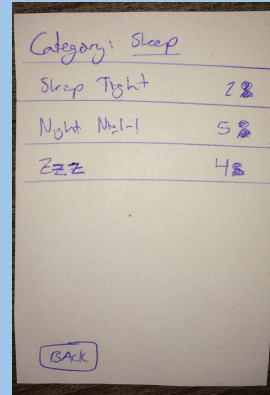 Category: Sleep
Sleep Tight 2
Night Night 5
Zzz 4
BACK